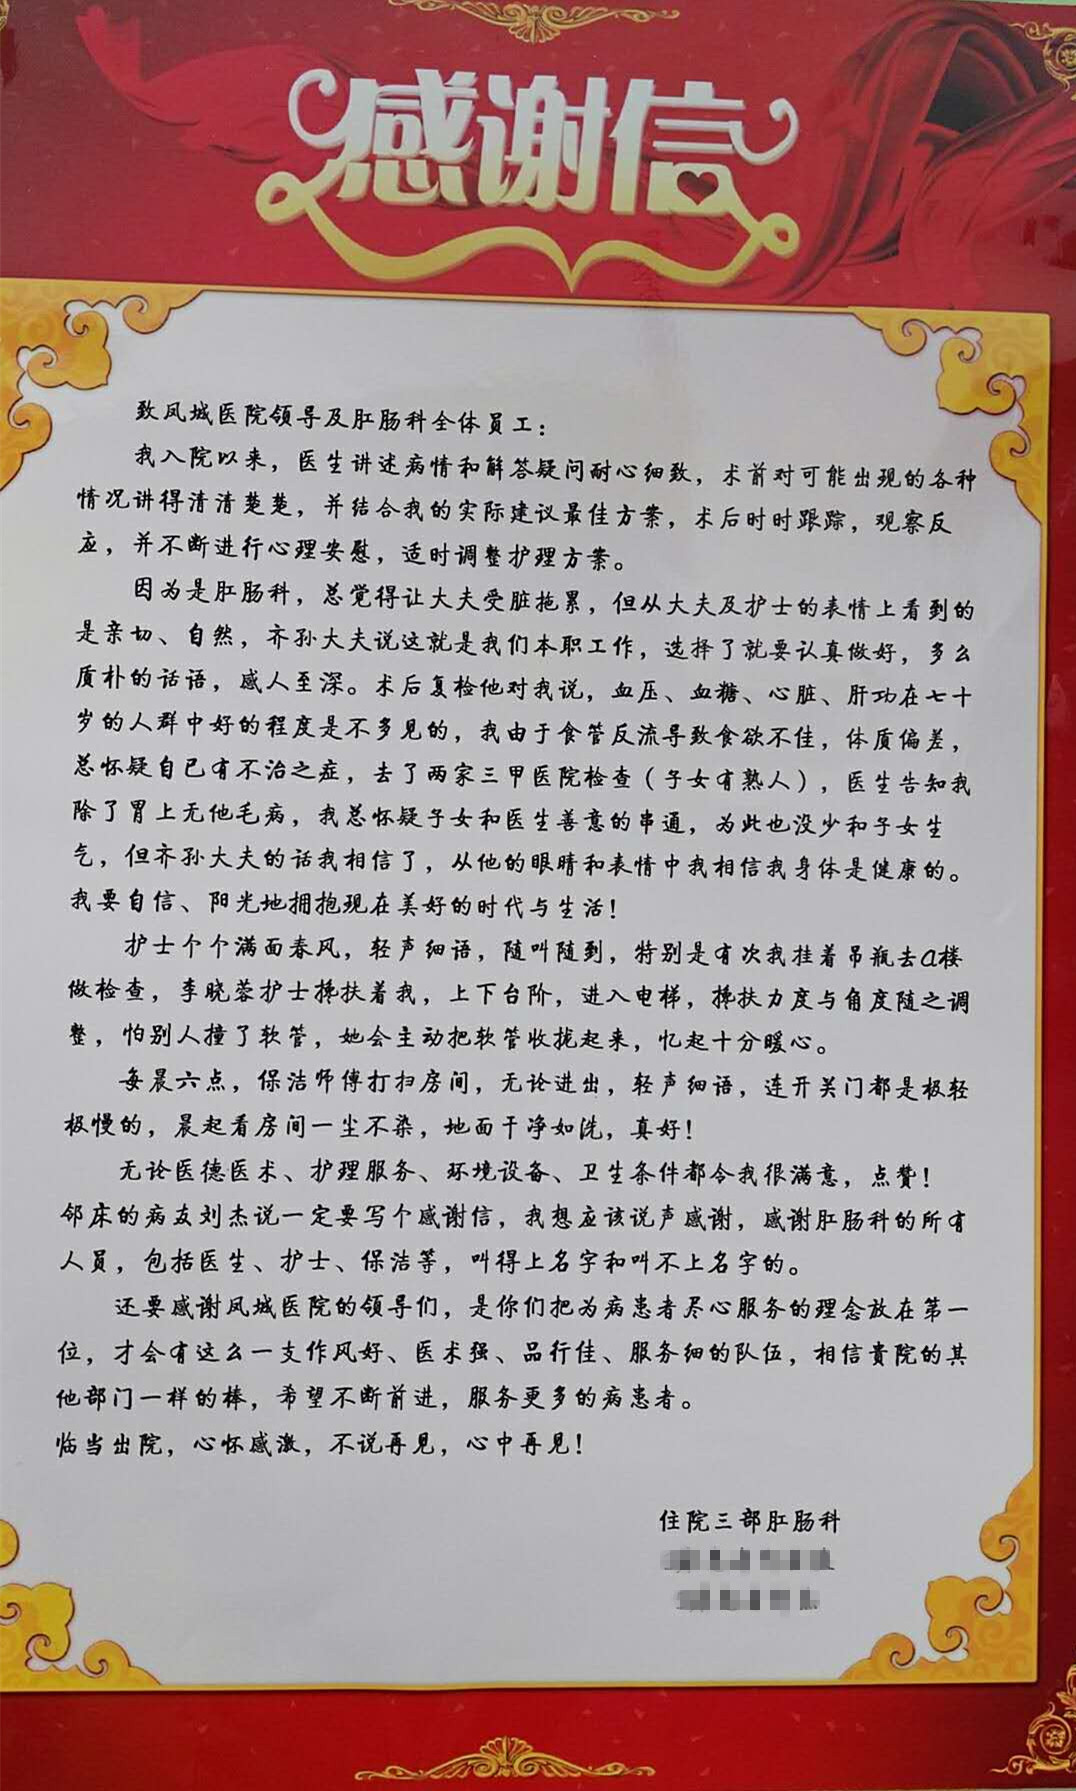 感谢信
致凤城医院领导及肛肠科全体员工：
我入院以来，医生讲述病情和解答疑问耐心细致，术前对可能出现的各种
情况讲得清清楚楚，并结合我的实际建议最佳方案，术后时时跟踪，观察反
应，并不断进行心理安慰，适时调整护理方案。
因为是肛肠科，总觉得让大夫受脏拖累，但从大夫及护士的表情上看到的
是亲切、自然，齐孙大夫说这就是我们本职工作，选择了就要认真做好，多么
质朴的话语，感人至深。术后复检他对我说，血压、血糖、心脏、肝功在七十
岁的人群中好的程度是不多见的，我由于食管反流导致食欲不佳，体质偏差，
总怀疑自已有不治之症，去了两家三甲医院检查（子女有熟人），医生告知我
除了胃上无他毛病，我总怀疑子女和医生善意的串通，为此也没少和子女生
气，但齐孙大夫的话我相信了，从他的眼睛和表情中我相信我身体是健康的。
我要自信、阳光地拥抱现在美好的时代与生活！
护士个个满面春风，轻声细语，随叫随到，特别是有次我挂着吊瓶去a楼
做检查，李晓蓉护士搀扶着我，上下台阶，进入电梯，搀扶力度与角度随之调
整，怕别人撞了软管，她会主动把软管收拢起来，忆起十分暖心。
每晨六点，保洁师傅打扫房间，无论进出，轻声细语，连开关门都是极轻
极慢的，晨起看房间一尘不染，地面干净如洗，真好！
无论医德医术、护理服务、环境设备、卫生条件都令我很满意，点赞！
邻床的病友刘杰说一定要写个感谢信，我想应该说声感谢，感谢肛肠科的所有
人员，包括医生、护士、保洁等，叫得上名字和叫不上名字的。
还要感谢凤城医院的领导们，是你们把为病患者尽心服务的理念放在第一
位，才会有这么一支作风好、医术强、品行佳、服务细的队伍，相信贵院的其
他部门一样的棒，希望不断前进，服务更多的病患者。
临当出院，心怀感激，不说再见，心中再见！
住院三部肛肠科